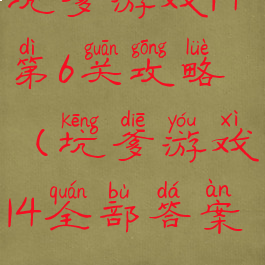 坑爹游戏14
dì guān gōng lüè
第6关攻略
kēng diē yóu xì
(坑爹游戏
quán bù dá àn
14全部答案